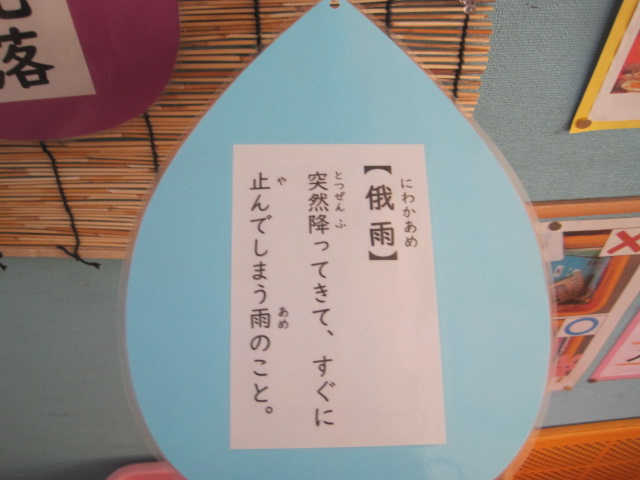 【俄雨】
にわかあめ
突然降ってきて、すぐに
とつぜんふ
止んでしまう雨のこと。
や
あめ
落